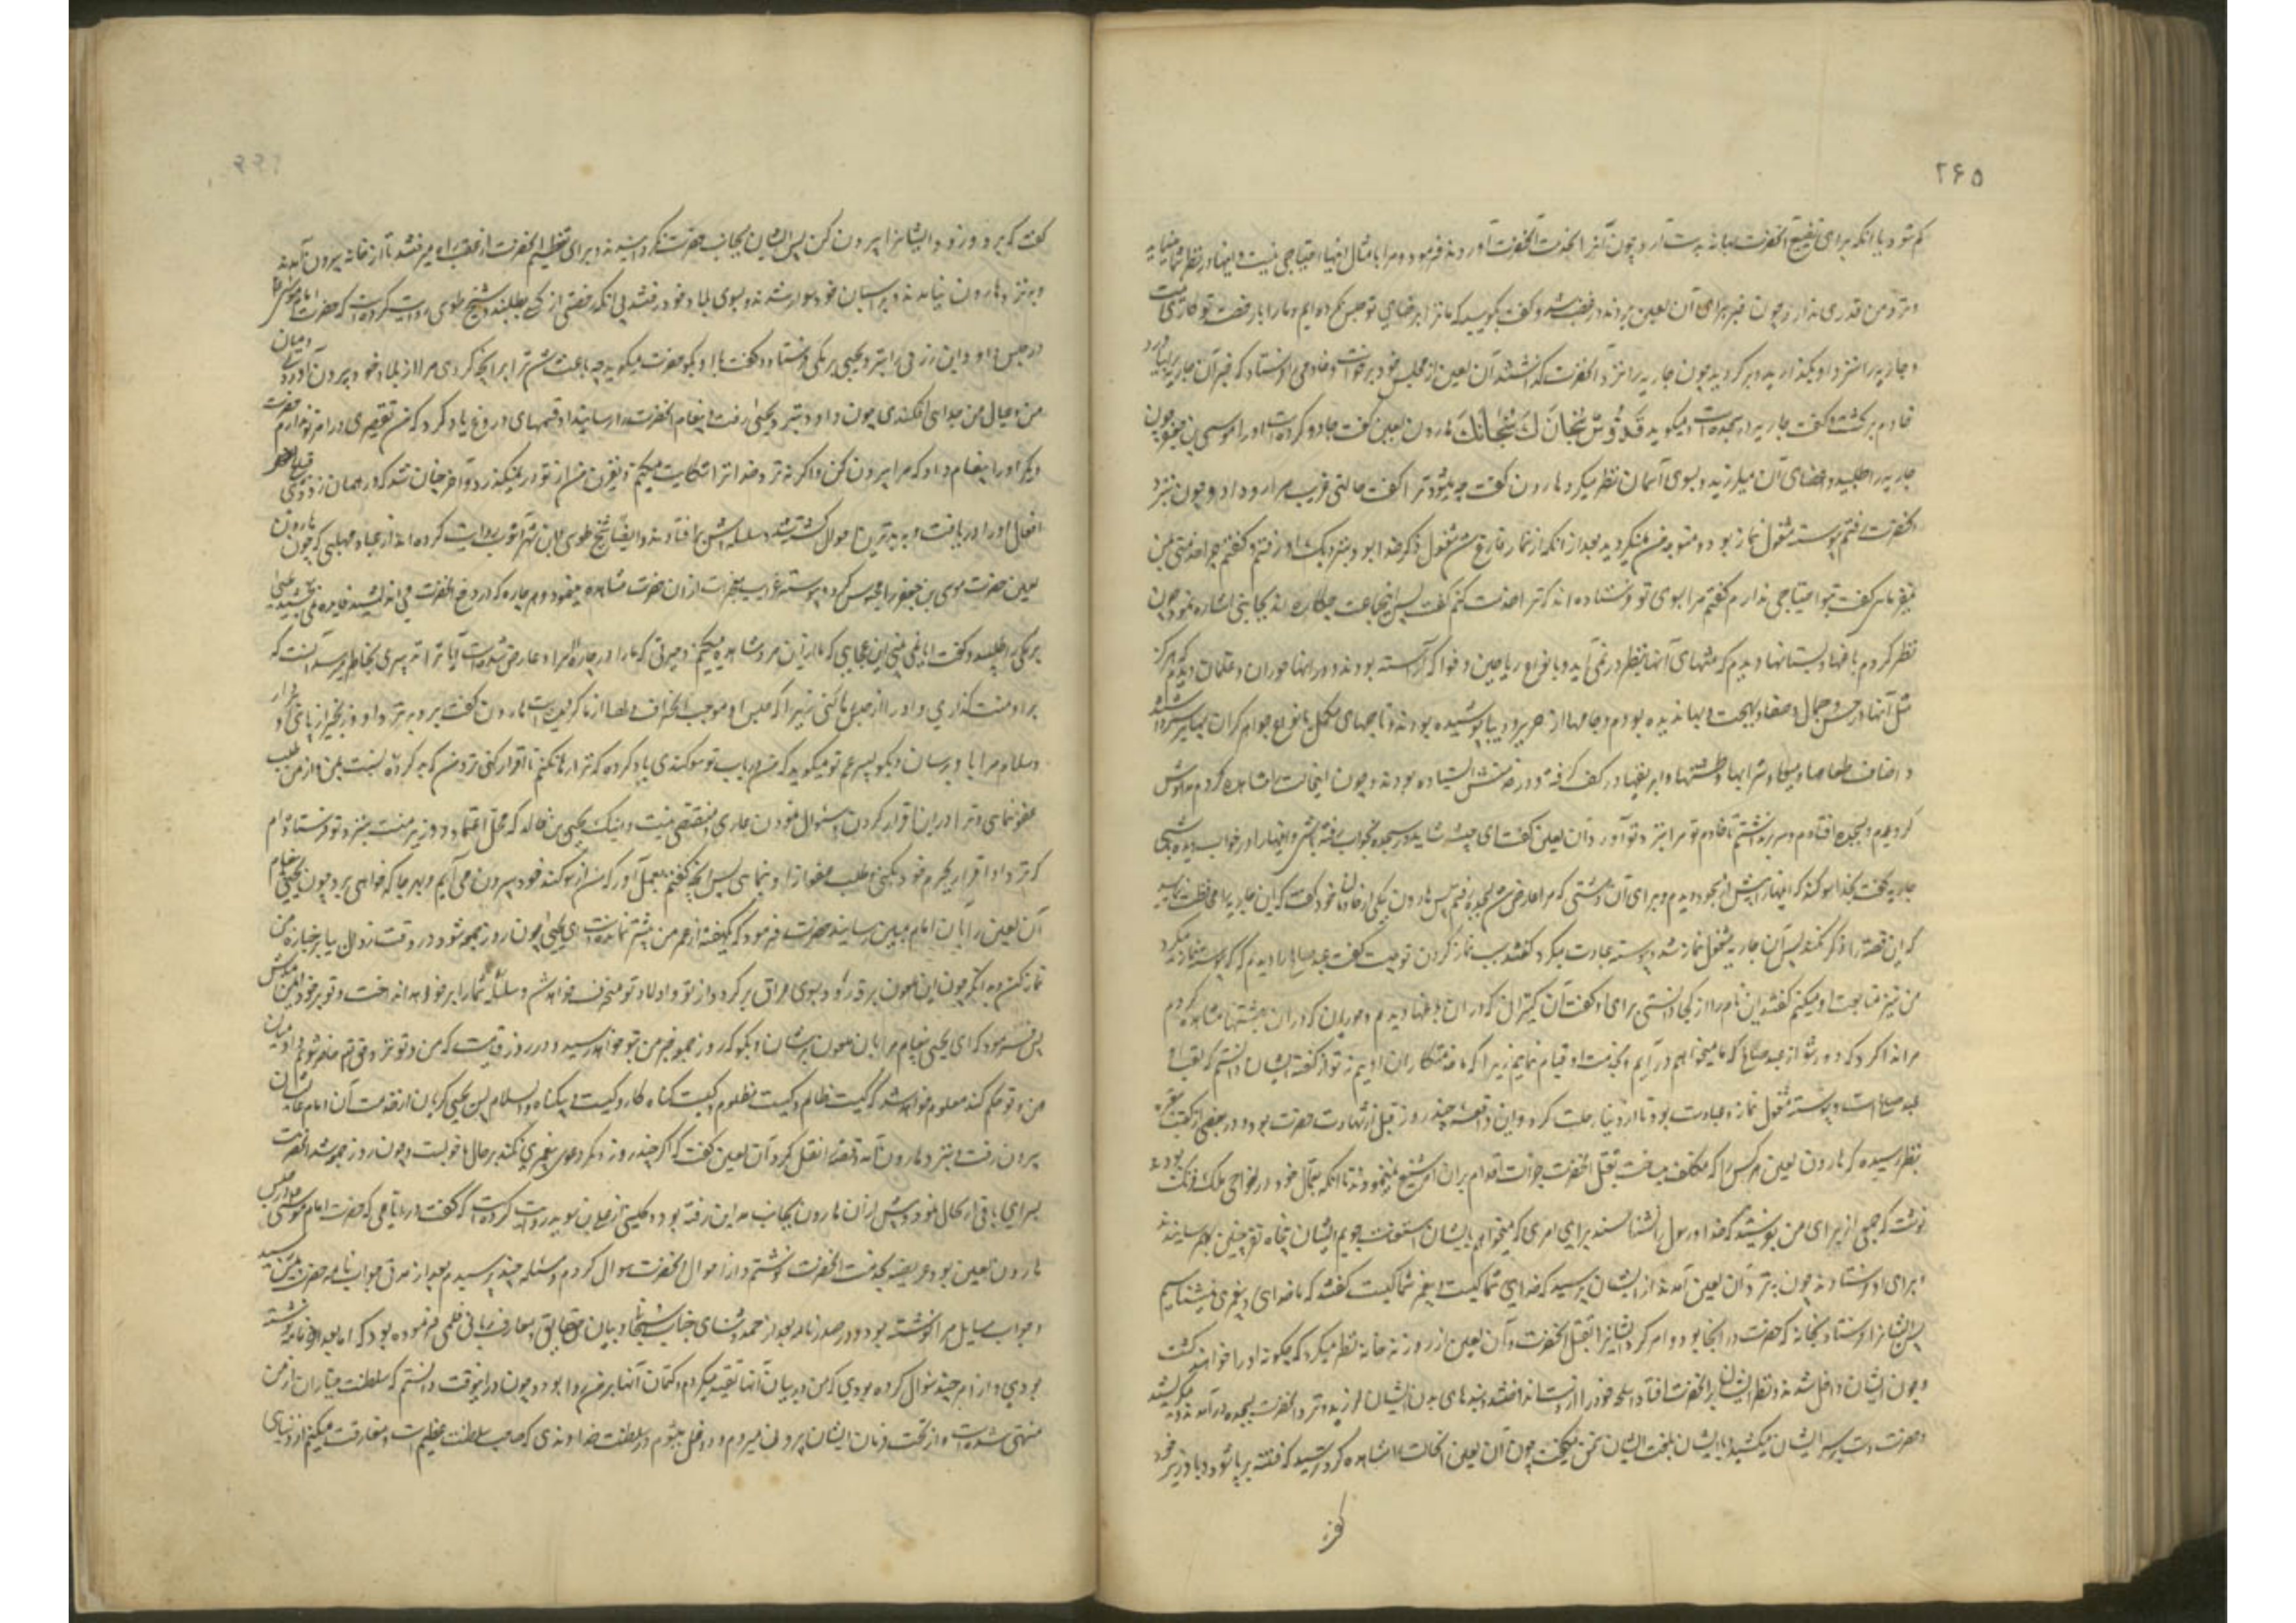 ۲۶۵
کم شود یا آنکه برای تفضیح آنحضرت بهانه بدست آرد چون آنرا بخدمت آنحضرت آوردند فرمود مرا بامثال اینها احتیاجی نیست و اینها در نظر شما مینماید
و نزد من قدری ندارد چون خبر برای آن لعین بردند در غضب شد و گفت بگویید که ما ترا برضای تو حبس نکرده ایم و ما را با رضای تو کاری نیست
و جاریه را نزد او بگذارید و برگردید چون جاریه را نزد آنحضرت گذاشتند آن لعین از مجلس خود برخاست و خادمی را فرستاد که خبر آن جاریه را بیاورد
خادم برگشت و گفت جاریه در سجده است و میگوید قدوس سبحانک سبحانک هارون لعین گفت جادو کرده است او را موسی بن جعفر چون
جاریه را طلبید اعضای آن میلرزید و بسوی آسمان نظر میکرد هارون گفت چه میشود ترا گفت حالتی غریب مرا رو داد و چون نزد
آنحضرت رفتم پیوسته مشغول نماز بود و متوجه من نمیگردید بعد از آنکه از نماز فارغ شد مشغول ذکر خدا بود نزدیک او رفتم و گفتم چرا خدمتی بمن
نمیفرمایی گفت بتو احتیاجی ندارم گفتم مرا بسوی تو فرستاده اند که ترا خدمت کنم گفت پس اینجماعت چکاره اند بجانبی اشاره نمود چون
نظر کردم باغها و بستانها دیدم که منتهای آنها بنظر در نمی آید و بانواع ریاحین و فواکه آراسته بودند و در آنها حوران و غلمان دیدم که هرگز
مثل آنها در حسن و جمال و صفا و بهجت و بها ندیده بودم و جامهها از حریر و دیبا پوشیده بودند و تاجهای مکلل بانواع جواهر گران بها بر سر داشتند
و اصناف طعامها و میوها و شرابها و طشتها و ابریقها در کف گرفته و در خدمتش ایستاده بودند و چون اینحالت را مشاهده کردم مدهوش
گردیدم و بسجده افتادم و سر برنداشتم تا خادم تو مرا بنزد تو آورد آن لعین گفت ای خبیثه شاید در سجده بخواب رفته باشی و اینها را در خواب دیده باشی
جاریه گفت بخدا سوگند که اینها را پیش از سجود دیدم و برای آن دهشتی که مرا عارض شد بسجده رفتم پس هارون بیکی از خادمان خود گفت که این جاریه را محافظت نماید
که این قصه را ذکر نکند پس آن جاریه مشغول نماز شد و پیوسته عبادت میکرد گفتند سبب نماز کردن تو چیست گفت عبد صالح را دیدم که پیوسته نماز میکرد
من نیز متابعت او میکنم گفتند این نام را از کجا دانستی برای او گفت آن کنیزان که در آن باغها دیدم و حوریان که در آن بهشتها مشاهده کردم
مرا ندا کردند که دور شو از عبد صالح که ما میخواهیم درآییم و بخدمت او قیام نماییم زیرا که ما خدمتکاران اوییم نه تو از گفته ایشان دانستم که لقب او
عبد صالح است و پیوسته مشغول نماز و عبادت بود تا از دنیا رحلت کرد و این واقعه چند روز قبل از شهادت حضرت بود و در بعضی از کتب معتبره
بنظر رسیده که هارون لعین هر کس را که مکلف میساخت بقتل آنحضرت جرأت اقدام بران امر شنیع نمینمودند تا آنکه بعمال خود در نواحی ملک فرنگ بودند
نوشت که جمعی از برای من بفرستید که خدا و رسول را نشناسند برای امری که میخواهم بایشان استعانت جویم ایشان پنجاه نفر چنین بهم رسانیدند
و برای او فرستادند چون بنزد آن لعین آمدند از ایشان پرسید که خدای شما کیست و پیغمبر شما کیست گفتند که ما خدای و پیغمبری نمیشناسیم
پس ایشانرا فرستاد بخانه که حضرت در آنجا بود و امر کرد ایشانرا بقتل آنحضرت و آن لعین از روزنه خانه نظر میکرد که چگونه او را خواهند کشت
و چون ایشان داخل شدند و نظر ایشان بر آنحضرت افتاد اسلحه خود را از دست انداختند و بندهای بدن ایشان لرزید و نزد آنحضرت بسجده درآمدند و میگریستند
و حضرت دست بر سر ایشان میکشید و با ایشان بلغت ایشان سخن میگفت چون آن لعین اینحالت را مشاهده کرد ترسید که فتنه برپا شود و با وزیر خود
گفت که برو و زود ایشانرا بیرون کن پس ایشان بجانب حضرت نگردانیدند و برای تعظیم آنحضرت از عقب راه میرفتند تا از خانه بیرون آمدند
و بنزد هارون نیامدند و بر اسبان خود سوار شدند و بسوی بلاد خود رفتند بی آنکه رخصتی از کسی بطلبند و شیخ طوسی روایت کرده است که حضرت امام موسی
در حبس هارون لعین روزی را بنزد یحیی برمکی فرستاد و گفت با او بگو حضرت میگوید چه باعث شد ترا بر آنچه کردی مرا از بلاد خود بیرون آوردی و میان
من و عیال من جدایی افکندی چون داود بنزد یحیی رفت و پیغام آنحضرت را رسانید او قسمهای دروغ یاد کرد که من تقصیری در امر تو ندارم حضرت
دیگر او را پیغام داد که مرا بیرون کن و اگر نه نزد خدا ترا شکایت میکنم و نفرین من از تو در نمیگذرد و آخر چنان شد که در همان زودی قباحت
افعال او را دریافت و ببدترین احوال کشته شد و سلسله اش برافتادند و ایضا شیخ طوسی و ابن شهر آشوب روایت کرده اند از عباد مهلبی که چون هارون
لعین حضرت موسی بن جعفر را محبوس کرد و پیوسته غرایب معجزات از آن حضرت مشاهده مینمود و هر چاره که در دفع آنحضرت می اندیشید فایده نمی بخشید یحیی
برمکی را طلبید و گفت ایا نمی بینی این عجایبی که ما از این مرد مشاهده میکنیم و حیرتی که ما را در چاره امر او عارض شده است آیا ترا تدبیری بخاطر میرسد آنست که
بر او منت گذاری و او را از حبس رها کنی زیرا که حبس او موجب انحراف دلها از ما گردیده است هارون گفت برو بنزد او و زنجیر از پای او بردار
و سلام مرا باو برسان و بگو پسر عم تو میگوید که من در باب تو سوگندی یاد کرده که ترا رها نکنم تا اقرار کنی نزد من که بد کرده نسبت بمن و از من طلب
عفو نمایی و ترا در این اقرار کردن و سئوال نمودن عاری و منقصتی نیست و اینک یحیی بن خالد که محل اعتماد و وزیر منست بنزد تو فرستادم
که نزد او اقرار بجرم خود بکنی و طلب عفو از او بنمایی پس آنچه گفتم بعمل آور که من از سوگند خود بیرون می آیم و بهر جا که خواهی برو چون یحیی پیغام
آن لعین را بآن امام مبین رسانید حضرت فرمود که یکهفته از عمر من بیشتر نمانده است ای یحیی چون روز جمعه شود در وقت زوال بیا بر جنازه من
نماز کن و بدانکه چون این ملعون به رقه رود و بسوی عراق برگردد از تو و اولاد تو منحرف خواهد شد و سلسله شما را بر خواهد انداخت و تو بر خود ایمن مباش
پس فرمود که ای یحیی پیغام مرا بآن ملعون برسان و بگو که روز جمعه خبر من بتو خواهد رسید و در روز قیامت که من و تو نزد حق تعالی حاضر شویم و او میان
من و تو حکم کند معلوم خواهد شد که کیست ظالم و کیست مظلوم و کیست گناه کار و کیست بیگناه و السلام پس یحیی گریان از خدمت آن امام عالیشان
بیرون رفت و بنزد هارون آمد و قصه را نقل کرد آن لعین گفت که اگر چند روز دیگر دعوی پیغمبری نکند بر حال ما خوبست و چون روز جمعه شد آنحضرت
بسرای باقی ارتحال نمود و پیش از آن هارون بجانب مداین رفته بود و کلینی از علی بن سوید روایت کرده است که گفت در ایامی که حضرت امام موسی در حبس
هارون لعین بود عریضه بخدمت آنحضرت نوشتم و از احوال آنحضرت سوال کردم و مسئله چند پرسیدم بعد از مدتی جواب نامه حضرت بمن رسید
و جواب مسایل مرا نوشته بود و در صدر نامه بعد از حمد و ثنای جناب سبحانی و بیان حقایق و معارف ربانی قلمی فرموده بود که اما بعد در نامه نوشته
بودی و از امر چند سئوال کرده بودی که من در بیان آنها تقیه میکردم و کتمان آنها بر من روا بود و چون در اینوقت دانستم که سلطنت جباران از من
منتهی شده است و از تحت فرمان ایشان بیرون میروم و داخل میشوم در سلطنت خداوندی که صاحب سلطنت عظیم است و مفارقت میکنم از دنیای